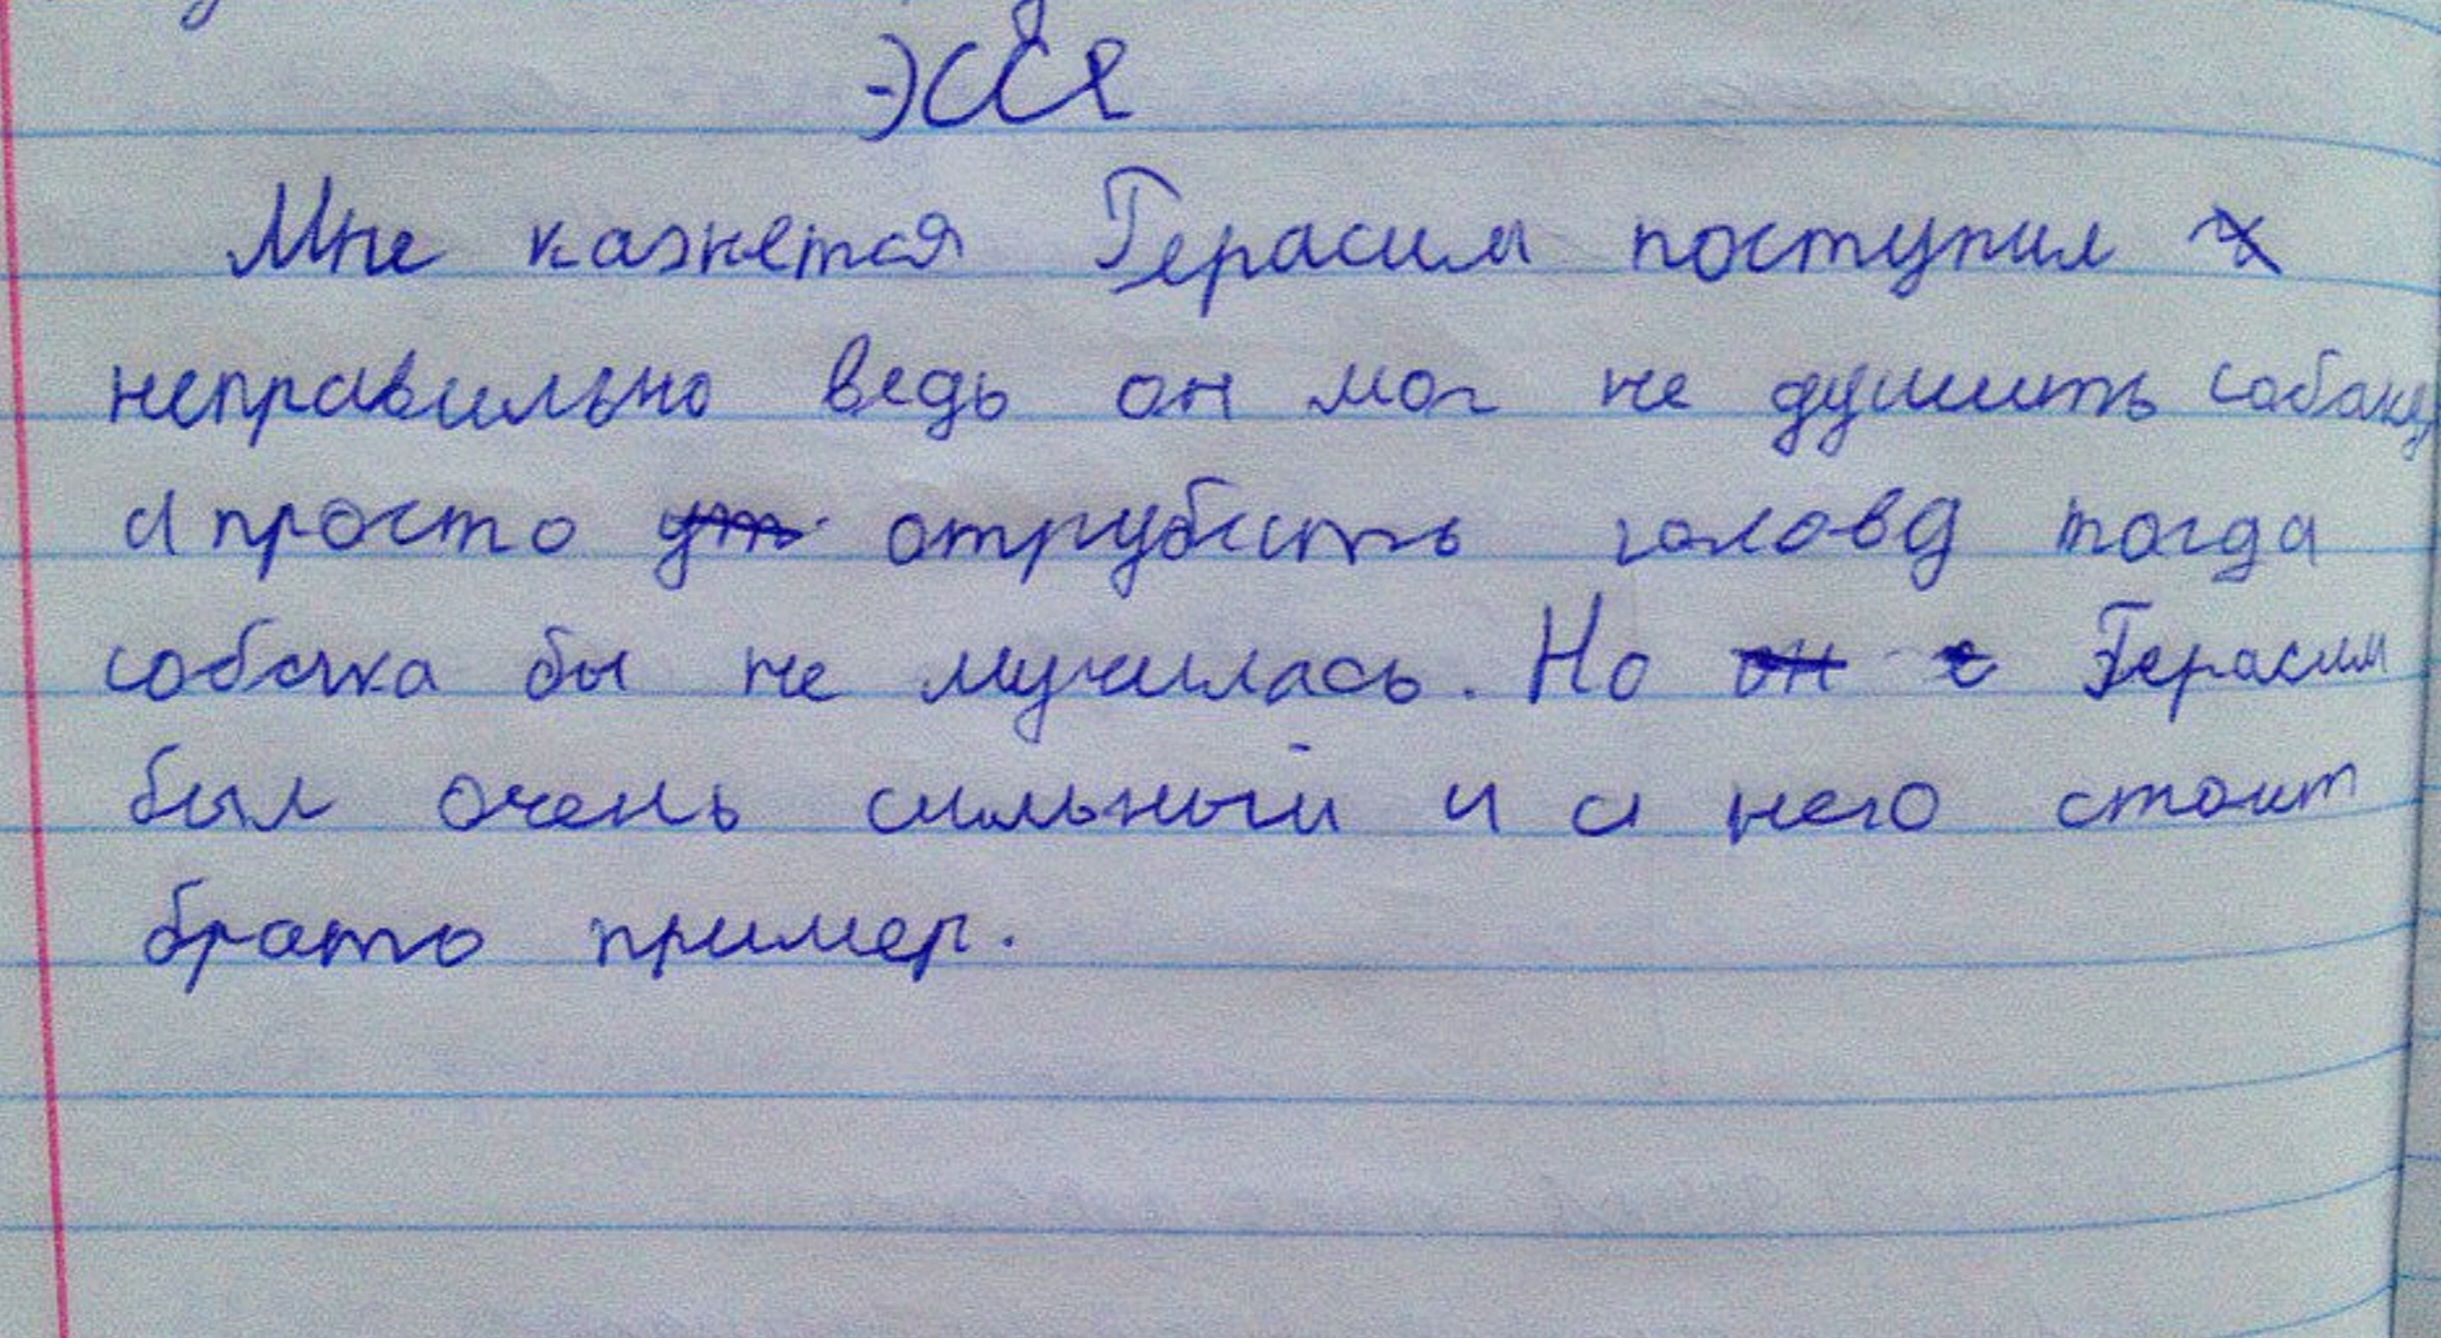 эссе
Мне кажется Герасим поступил
неправильно ведь он мог не душить собаку
а просто отрубить голову тогда
собачка бы не мучилась. Но Герасим
был очень сильный и с него стоит
брать пример.